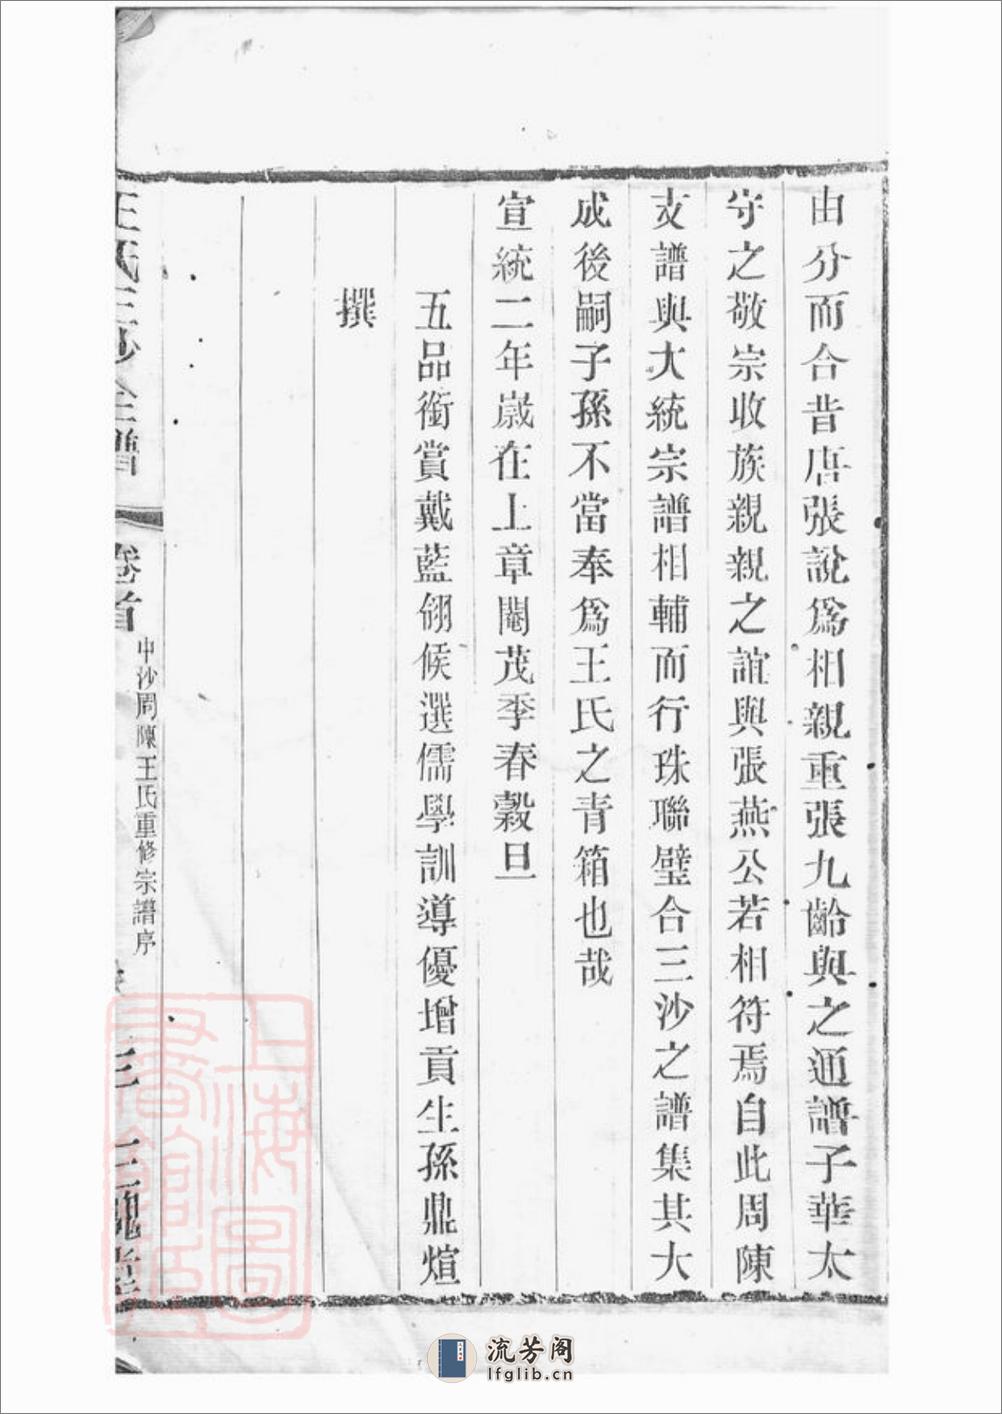 由分而合昔唐張說爲相親重張九齡與之通譜子華太
守之敬宗收族親親之誼與張燕公若相符焉自此周陳
支譜與大統宗譜相輔而行珠聯璧合三沙之譜集其大
成後嗣子孫不當奉爲王氏之青箱也哉
宣統二年歲在上章閹茂季春穀旦
五品銜賞戴藍翎候選儒學訓導優增貢生孫鼎煊
撰
王氏三沙全譜
卷首
中沙周陳王氏重修宗譜序
三
三槐堂
上海圖
書館藏
流芳阁
lfglib.cn